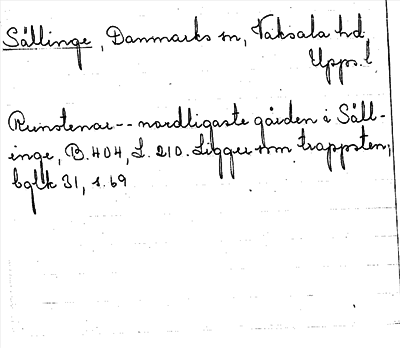 Sällinge, Danmarks sn, Vaksala hd
Upps. l
Runstenar -- nordligaste gården i Säll-
inge, B. 404, L. 210. Ligger som trappsten,
bqlk 31, s. 69